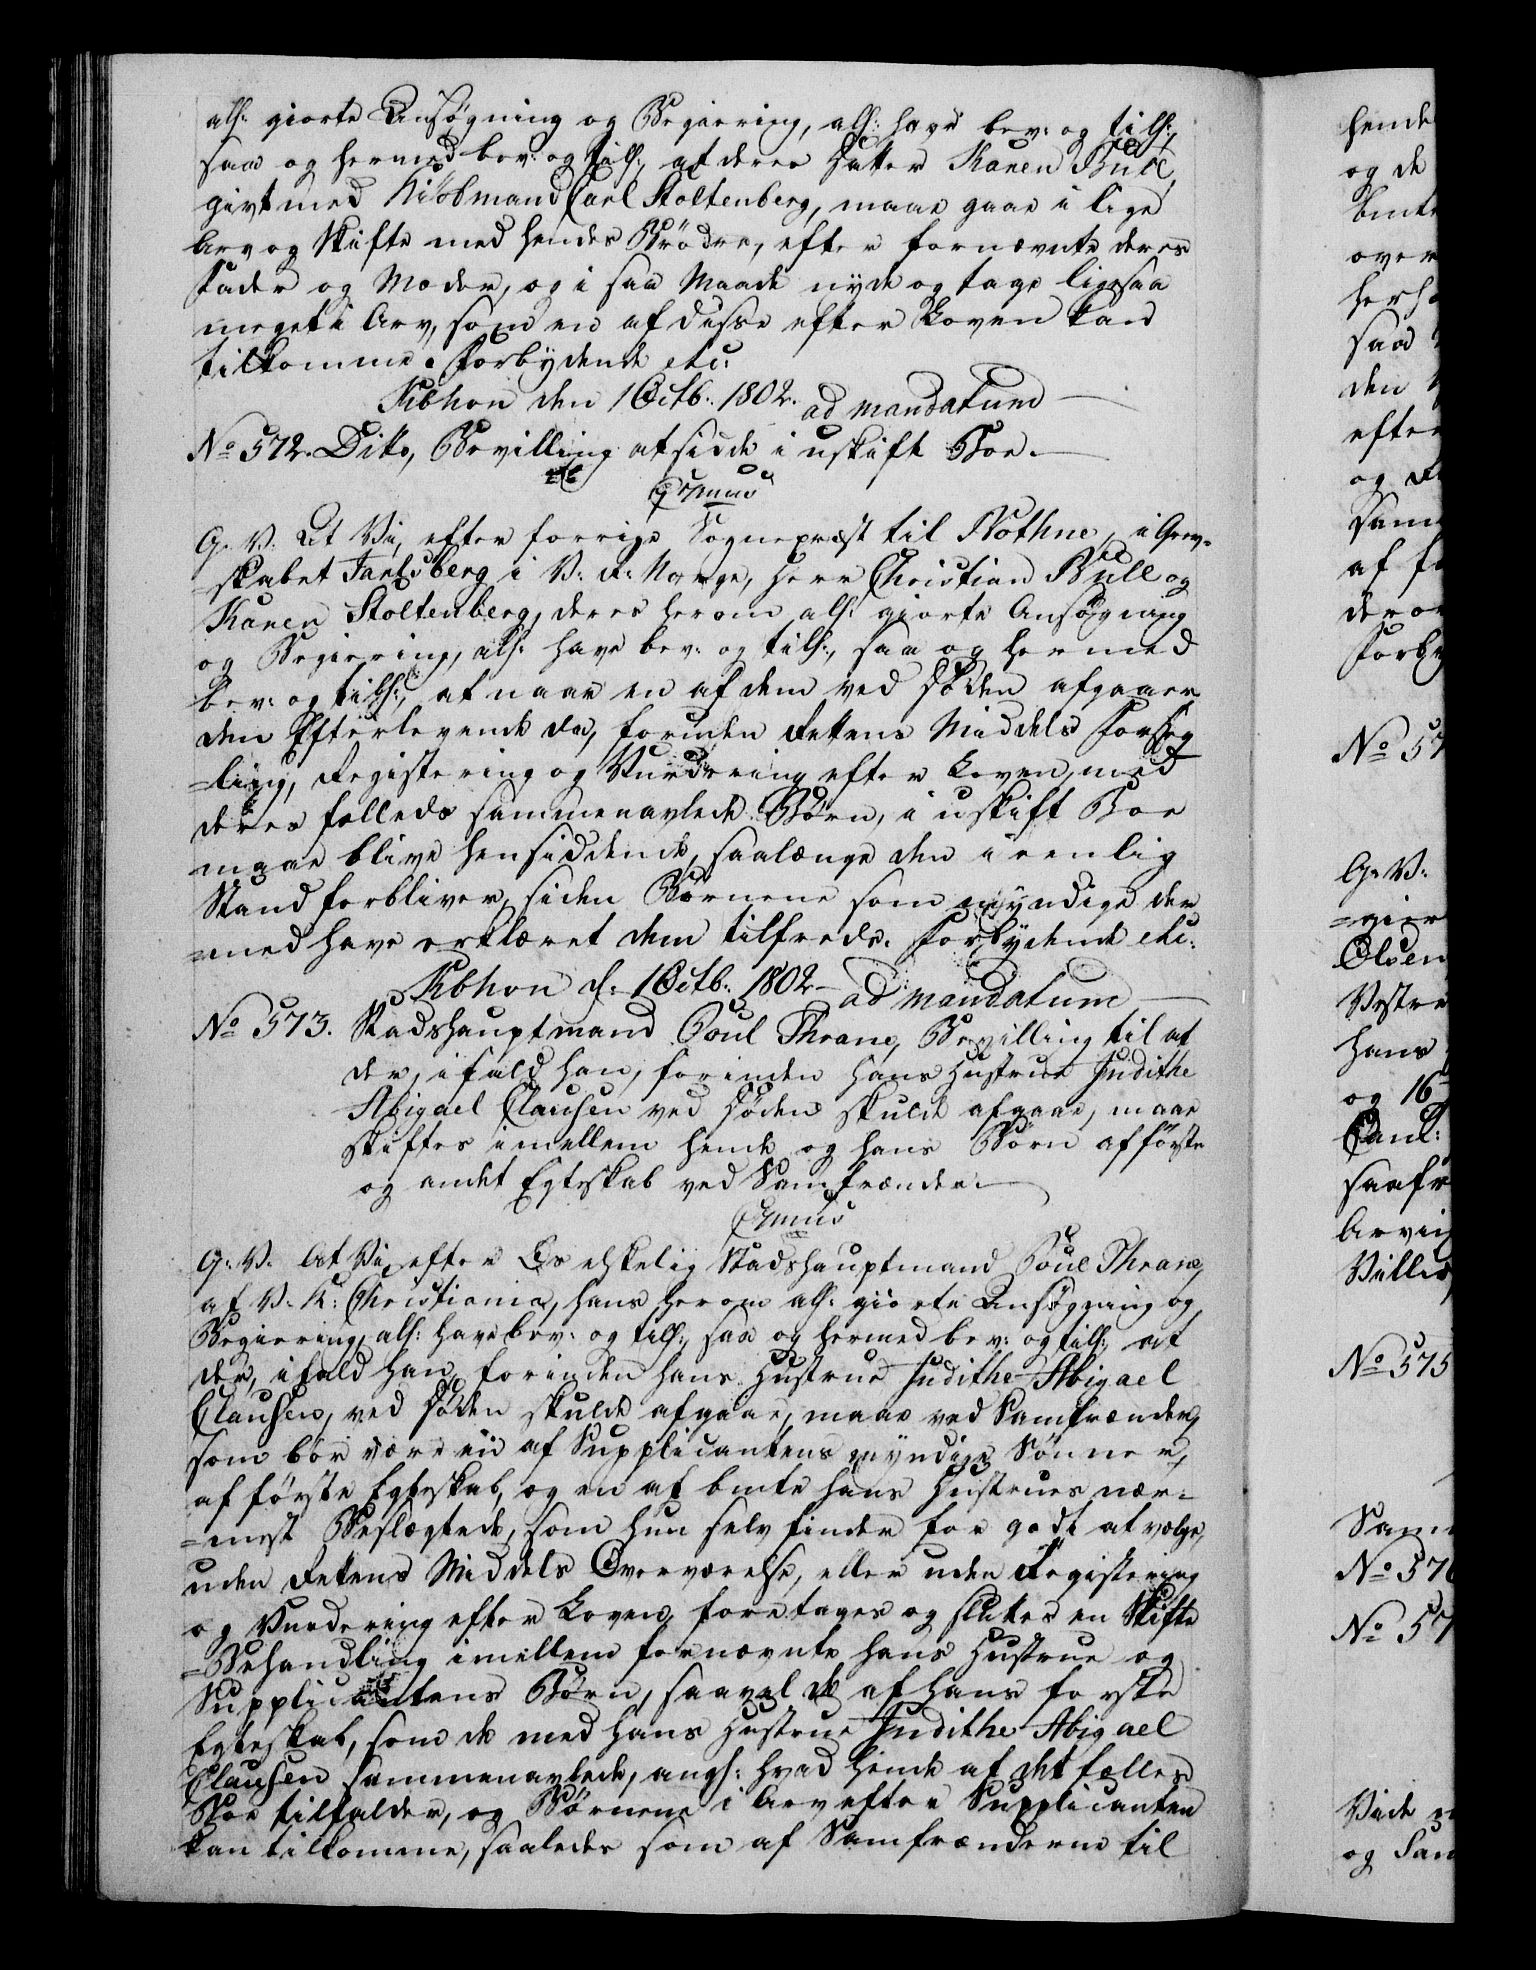 alh: giorte Ansøgning og Begiering, alh: have bev: og tilh:,
saa og hermed bev: og tilh:, at deres Datter Karen Bull,
givt med Kiöbmand Carl Stoltenberg, maae gaae i lige
Arv og Skifte med hendes Brödre, efter fornævnte deres
Fader og Moder, og i saa Maade nyde og tage ligesaa
meget i Arv, som en af disse efter Loven kand
tilkomme. Forbydende etc:
Kbhvn den 1 Octb: 1802. ad mandatum
No 572. Dito, Bevilling at sidde i uskift Boe.
Gr. V: At Vi, efter forrige Sognepræst til Bothne, i Grev-
=skabet Jarlsberg i V: R: Norge, Herr Christian Bull og
Karen Stoltenberg, deres herom alh: giorte Ansøgning
og Begiering, alh: have bev: og tilh:, saa og hermed
bev: og tilh:, at naar en af dem ved Døden afgaaer,
den Efterlevende da, foruden Rettens Middels Forseg
=ling, Registering og Vurdering efter Loven, med
deres fælleds sammenavlede Børn, i uskift Boe
maae blive hensiddende, saalænge den i eenlig
Stand forbliver, siden Børnene som myndige der
=med have erklæret dem tilfreds. Forbydende etc:
Kbhvn d: 1 Octb: 1802. ad mandatum
No 573. Stadshauptmand Poul Thrane, Bevilling til at
der, ifald han, forinden hans Hustrue Judithe
Abigael Clausen ved Døden skulde afgaae, maae
skiftes imellem hende og hans Börn af første
og andet Egteskab ved Samfrænder.
G: V: At Vi, efter Os elskelig Stadshauptmand Poul Thrane,
af V: K: Christiania, hans herom alh: giorte Ansøgning og
Begiering, alh: have bev: og tilh:, saa og hermed bev: og tilh:, at
der, ifald han, forinden hans Hustrue Judithe Abigael
Clausen, ved Døden skulde afgaae, maae ved Samfrænder,
som bör være en af Supplicantens myndige Sønner,
af første Egteskab, og en af bmte hans Hustrues nær-
=mest Beslægtede, som hun selv finder for godt at vælge,
uden Rettens Middels Overværelse, eller uden Registering
og Vurdering efter Loven, foretages og sluttes en Skifte
=Behandling imellem fornævnte hans Hustrue og
Supplicantens Börn, saavel de af hans første
Egteskab, som de med hans Hustrue Judithe Abigael
Clausen sammenavlede, angh: hvad hende af det fælles
Boe tilfalder, og Börnene i Arv efter Supplicanten
kan tilkomme, saaledes som af Samfrænderne til
hende
og de
bmte
over
saa
den
efter
og
af
No 57
G: V:
=gier
Olsen
Vestre
hans
og 16
Arvin
No 575
Sam
No 576
No 57
Vide
og San